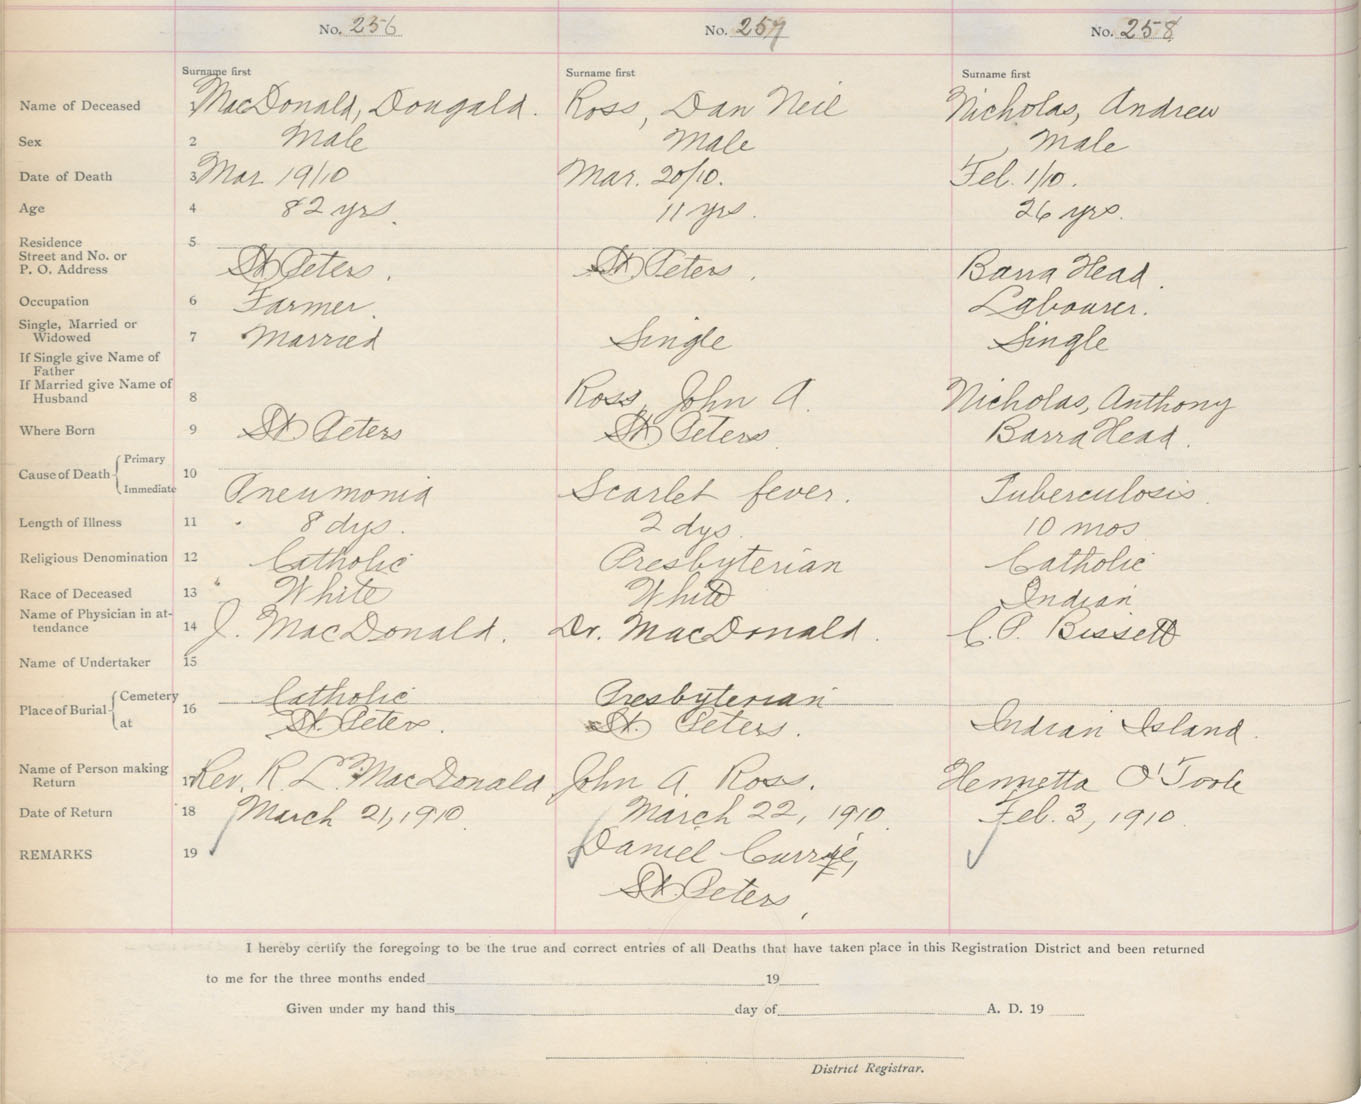 No. 256 No. 257 No. 258
Surname first Surname first Surname first
Name of Deceased 1 MacDonald, Dougald. Ross, Dan Neil Nicholas, Andrew
Sex 2 Male Male Male
Date of Death 3 Mar 19/10 Mar. 20/10. Feb. 1/10.
Age 4 82 yrs. 11 yrs. 26 yrs.
Residence 5
Street and No. or
P. O. Address St Peters. St. Peters. Barra Head.
Occupation 6 Farmer. Labourer.
Single, Married or
Widowed 7 Married Single Single
If Single give Name of
Father
If Married give Name of
Husband 8 Ross, John A. Nicholas, Anthony
Where Born 9 St Peters St Peters. Barra Head.
Cause of Death Primary 10
Immediate Pneumonia Scarlet fever. Tuberculosis.
Length of Illness 11 8 dys. 2 dys. 10 mos
Religious Denomination 12 Catholic Presbyterian Catholic
Race of Deceased 13 White White Indian
Name of Physician in at-
tendance 14 J. MacDonald. Dr. MacDonald. C. P. Bissett
Name of Undertaker 15
Place of Burial Cemetery 16 Catholic Presbyterian
at St. Peters. St. Peters. Indian Island.
Name of Person making
Return 17 Rev. R. L. MacDonald John A. Ross. Henrietta O'Toole
Date of Return 18 March 21, 1910. March 22, 1910. Feb. 3, 1910.
REMARKS 19 Daniel Currie,
St. Peters,
I hereby certify the foregoing to be the true and correct entries of all Deaths that have taken place in this Registration District and been returned
to me for the three months ended 19
Given under my hand this day of A. D. 19
District Registrar.